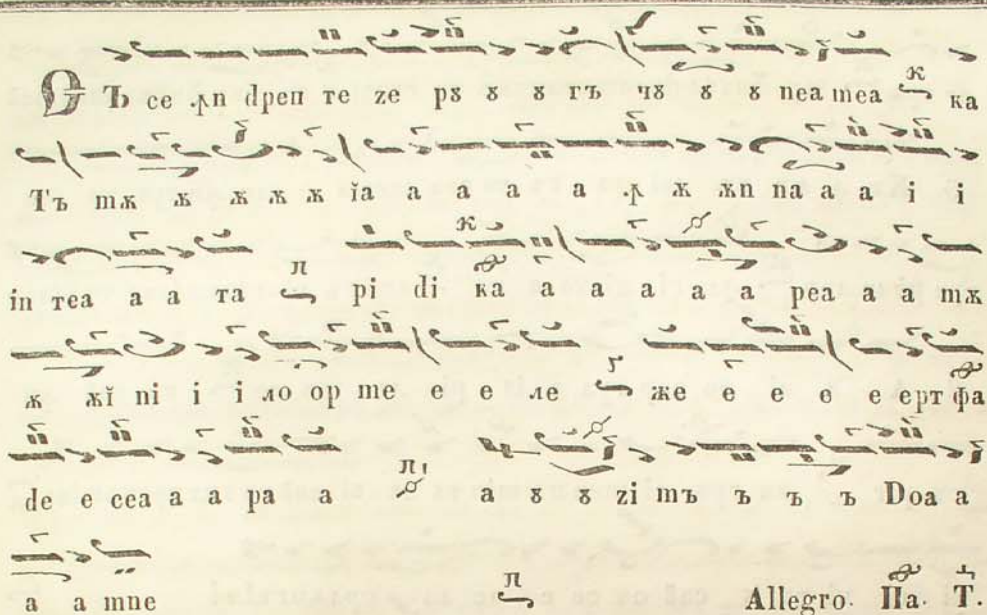 Съ се .ꙟп dpeп те ze рȣ ȣ ȣ гъ чȣ ȣ ȣ пеа mea ка
Тъ mѫ ѫ ѫ ѫ ѫ їа а а а а .ꙟ ѫ ѫп па а а і і
in теа а а та рі di ка а а а а а а реа а а mѫ
ѫ ѫĭ пі і і ло ор me е е ле же е е е е ерт фа
de е сеа а а ра а а ȣ ȣ zi mъ ъ ъ ъ Doa а
а а mne Allegro. Па. Т.